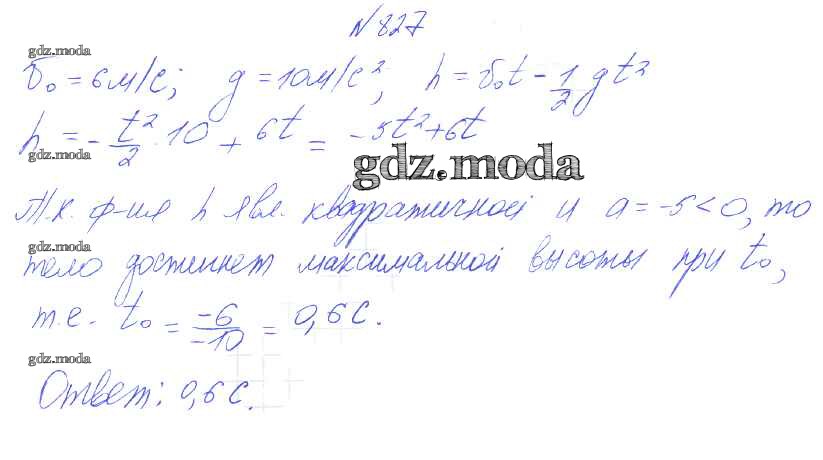 №827
gdz.moda
v₀ = 6м/с; g = 10м/с²; h = v₀t - 1/2 gt²
h = - t²/2 · 10 + 6t = -5t²+6t
gdz.moda
gdz.moda
Т.к. ф-ия h явл. квадратичной и a = -5 < 0, то
gdz.moda
тело достигнет максимальной высоты при t₀,
т.е. t₀ = -6/-10 = 0,6 с.
gdz.moda
Ответ: 0,6 с.